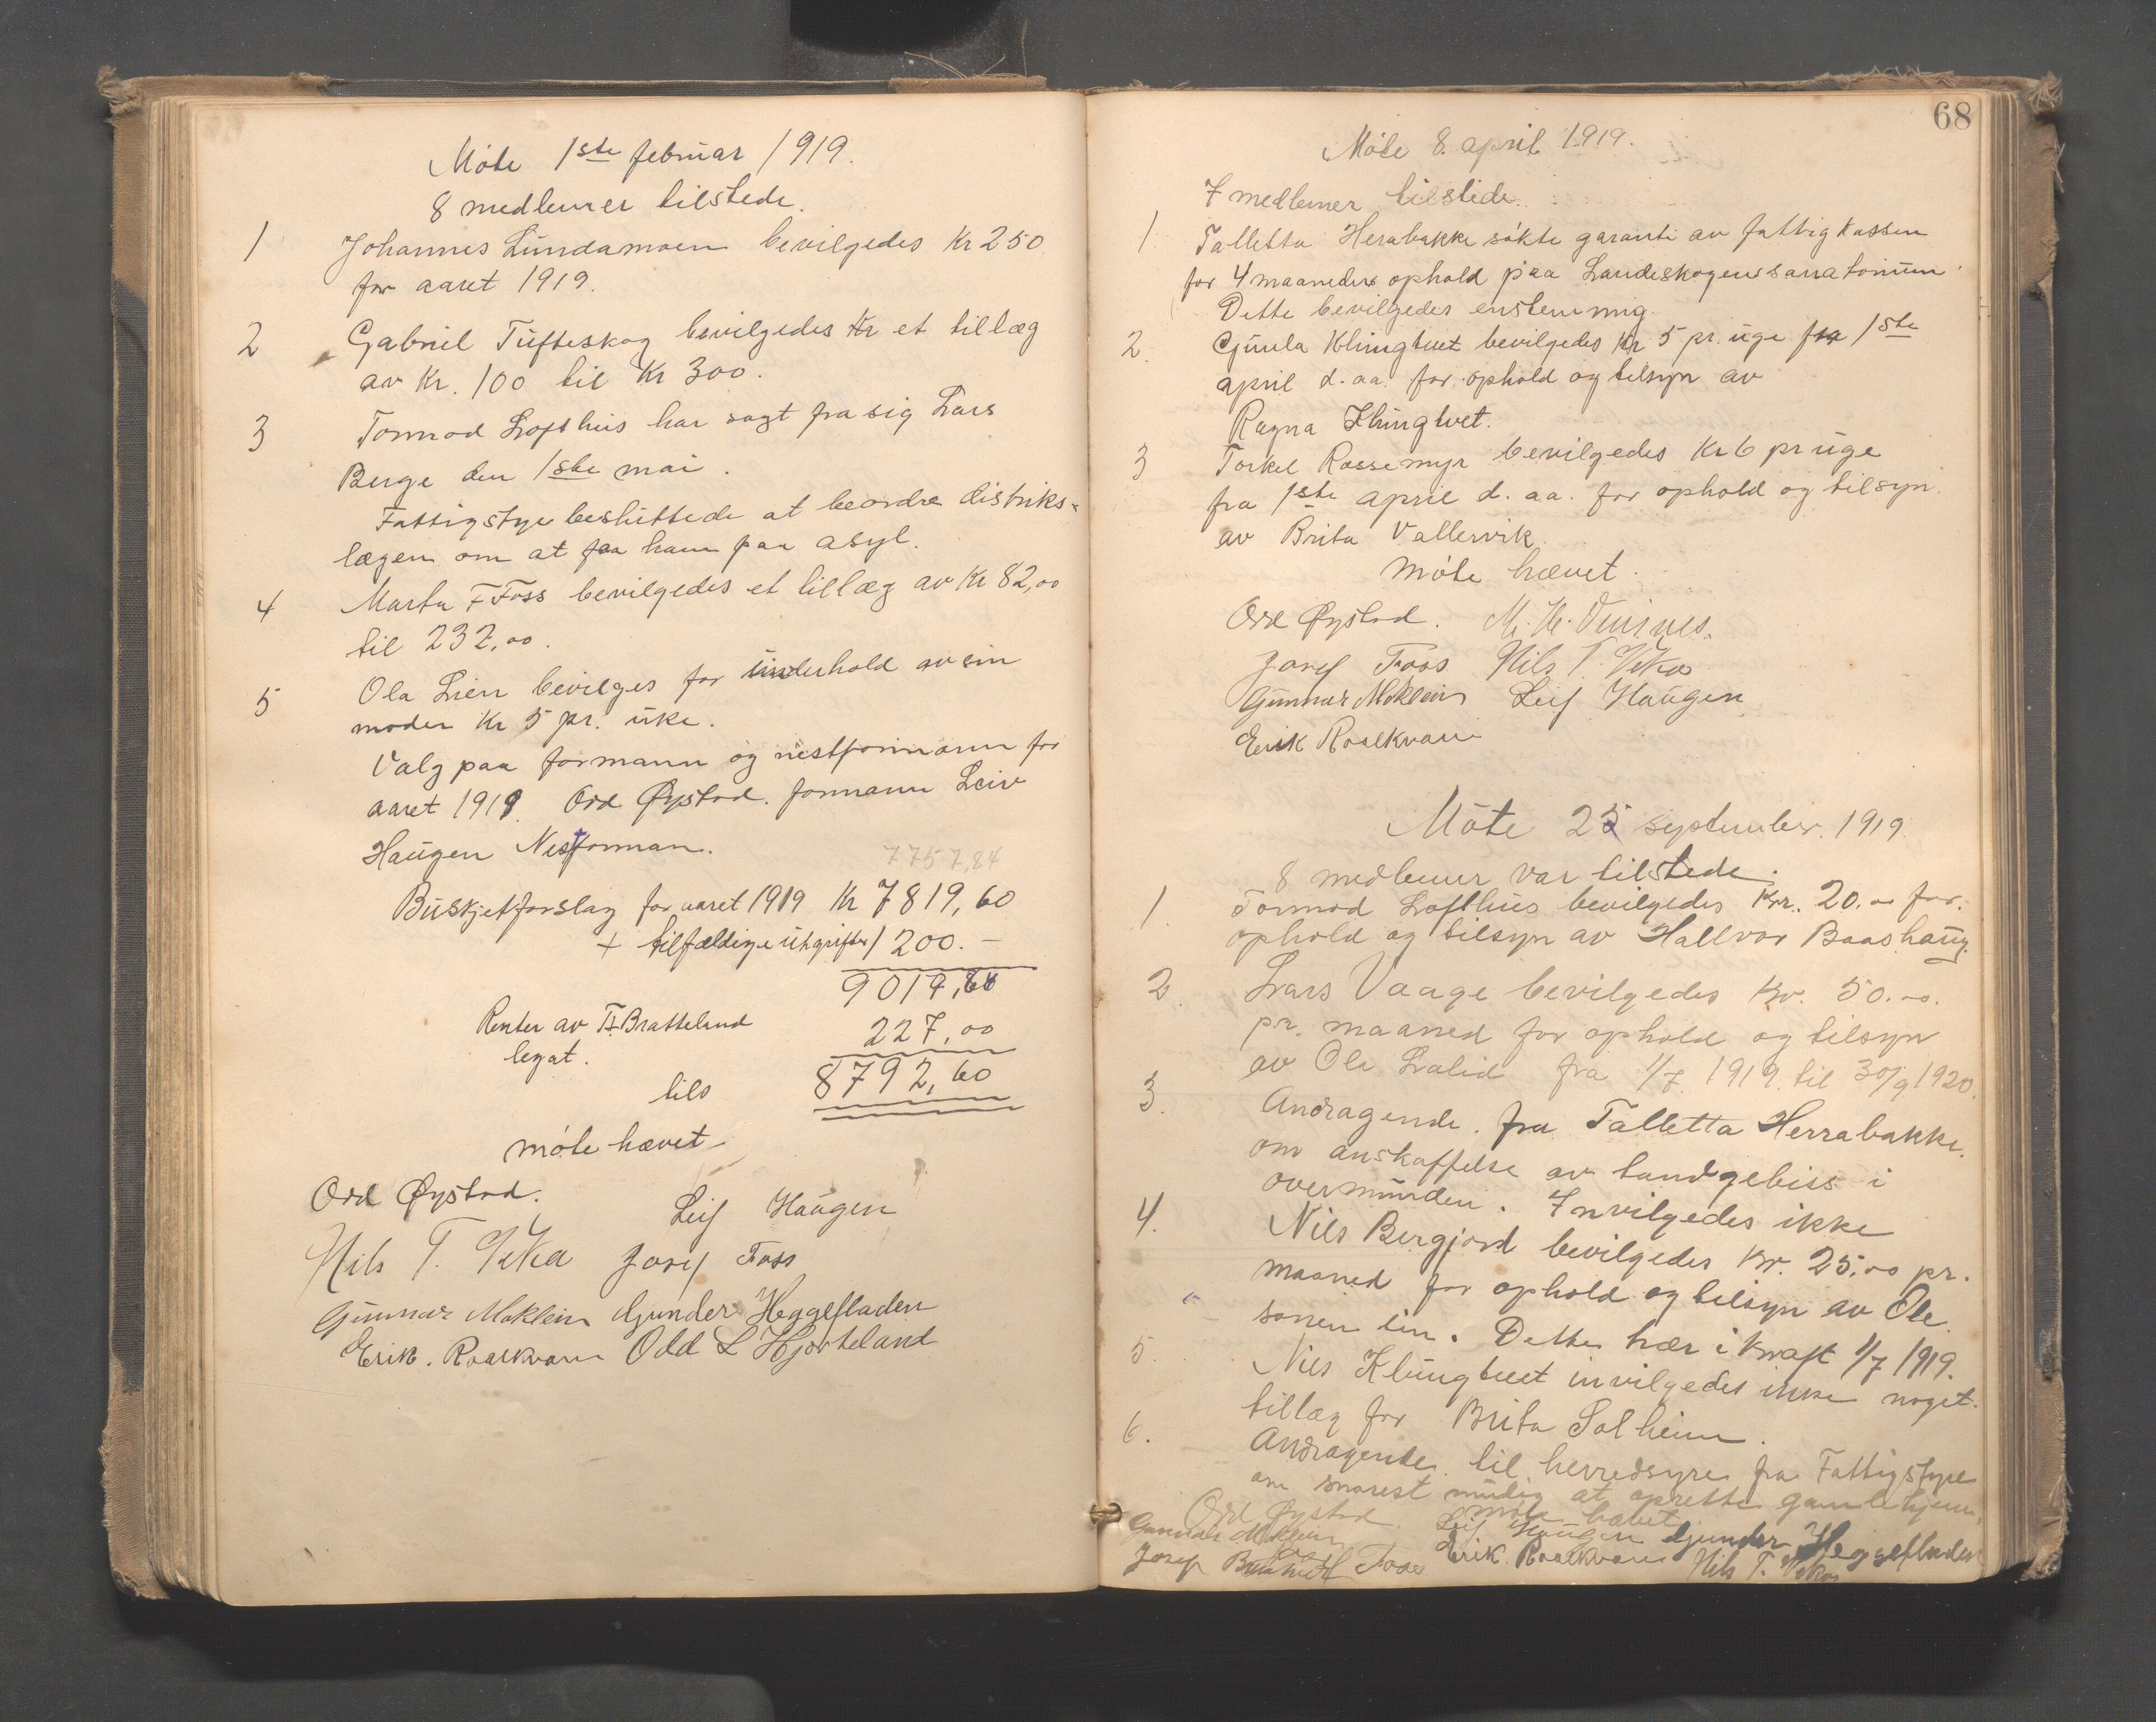 Møte 1ste februar 1919.
8 medlemer tilstede.
1 Johannes Lundamoen bevilgedes Kr 250
for aaret 1919.
2 Gabriel Tufteskog bevilgedes Kr et tillæg
av Kr. 100 til Kr 300.
3 Tormod Lofthus har sagt fra sig Lars
Berge den 1ste mai.
Fattigstye besluttede at beordre distriks-
lægen om at faa ham paa asyl.
4 Marta F Foss bevilgedes et tillæg av Kr 82,00
til 232,00.
5 Ola Lien bevilges for underhold av sin
moder Kr 5 pr. uke.
Valg paa formann og nestformann for
aaret 1919. Odd Øystad. formann Leiv
Haugen Nestforman.
7757,84
Buskjetforslag for aaret 1919 Kr 7819,60
+ tilfældige utgrifter 1200.—
9019,60
Renter av T. Bratteland 227,00
legat.
tils 8792,60
møte hævet
Odd Øystad. Leif Haugen
Nils T. Veka Josef Foss
Gunnar Moklein Gunder Heggefladen
Erik. Roalkvam Odd L Hjorteland
68
Møte 8. april 1919.
7 medlemer tilstede.
1 Talletta Herabakke søkte garanti av fattigkassen
for 4 maaneders ophold paa Landeskogens sanatorium.
Dette bevilgedes enstemmig.
2. Gjuula Klungtvet bevilgedes Kr 5 pr. uge fra 1ste
april d. aa. for ophold og tilsyn av
Ragna Klungtvet.
3 Torkel Rossemyr bevilgedes Kr 6 pr uge
fra 1ste april d. aa. for ophold og tilsyn.
av Brita Vallervik.
møte hævet.
Odd Øystad. M. H. Vinsnes.
Josef Foss Nils T. Veka
Gunnar Moklein Leif Haugen
Erik Roalkvam
Møte 25 september. 1919.
8 medlemer var tilstede.
1. Tormod Lofthus bevilgedes Kr. 20.00 for.
ophold og tilsyn av Hallvor Baashaug.
2. Lars Vaage bevilgedes Kr. 50.00.
pr. maaned for ophold og tilsyn
av Ole Lalid fra 1/7. 1919. til 30/9 1920.
3. Andragende. fra Talletta Herrabakke.
om anskaffelse av tandgebiss i
overmunden. Invilgedes ikke
4. Nils Bergjord bevilgedes Kr. 25,00 pr.
maaned for ophold og tilsyn av Ole.
sonen sin. Dette trær i kraft 1/7 1919.
5. Nils Klungtveet invilgedes ikke noget.
tillæg for Brita Solheim.
6. Andragende. til herredsyre fra Fattigstyre
om snarest mulig at oprette gamlehjem.
møte hævet.
Odd Øystad. Leif Haugen Gunder Heggefladen
Gunnar Moklein Erik Roalkvam Nils T. Veka
Josef Foss